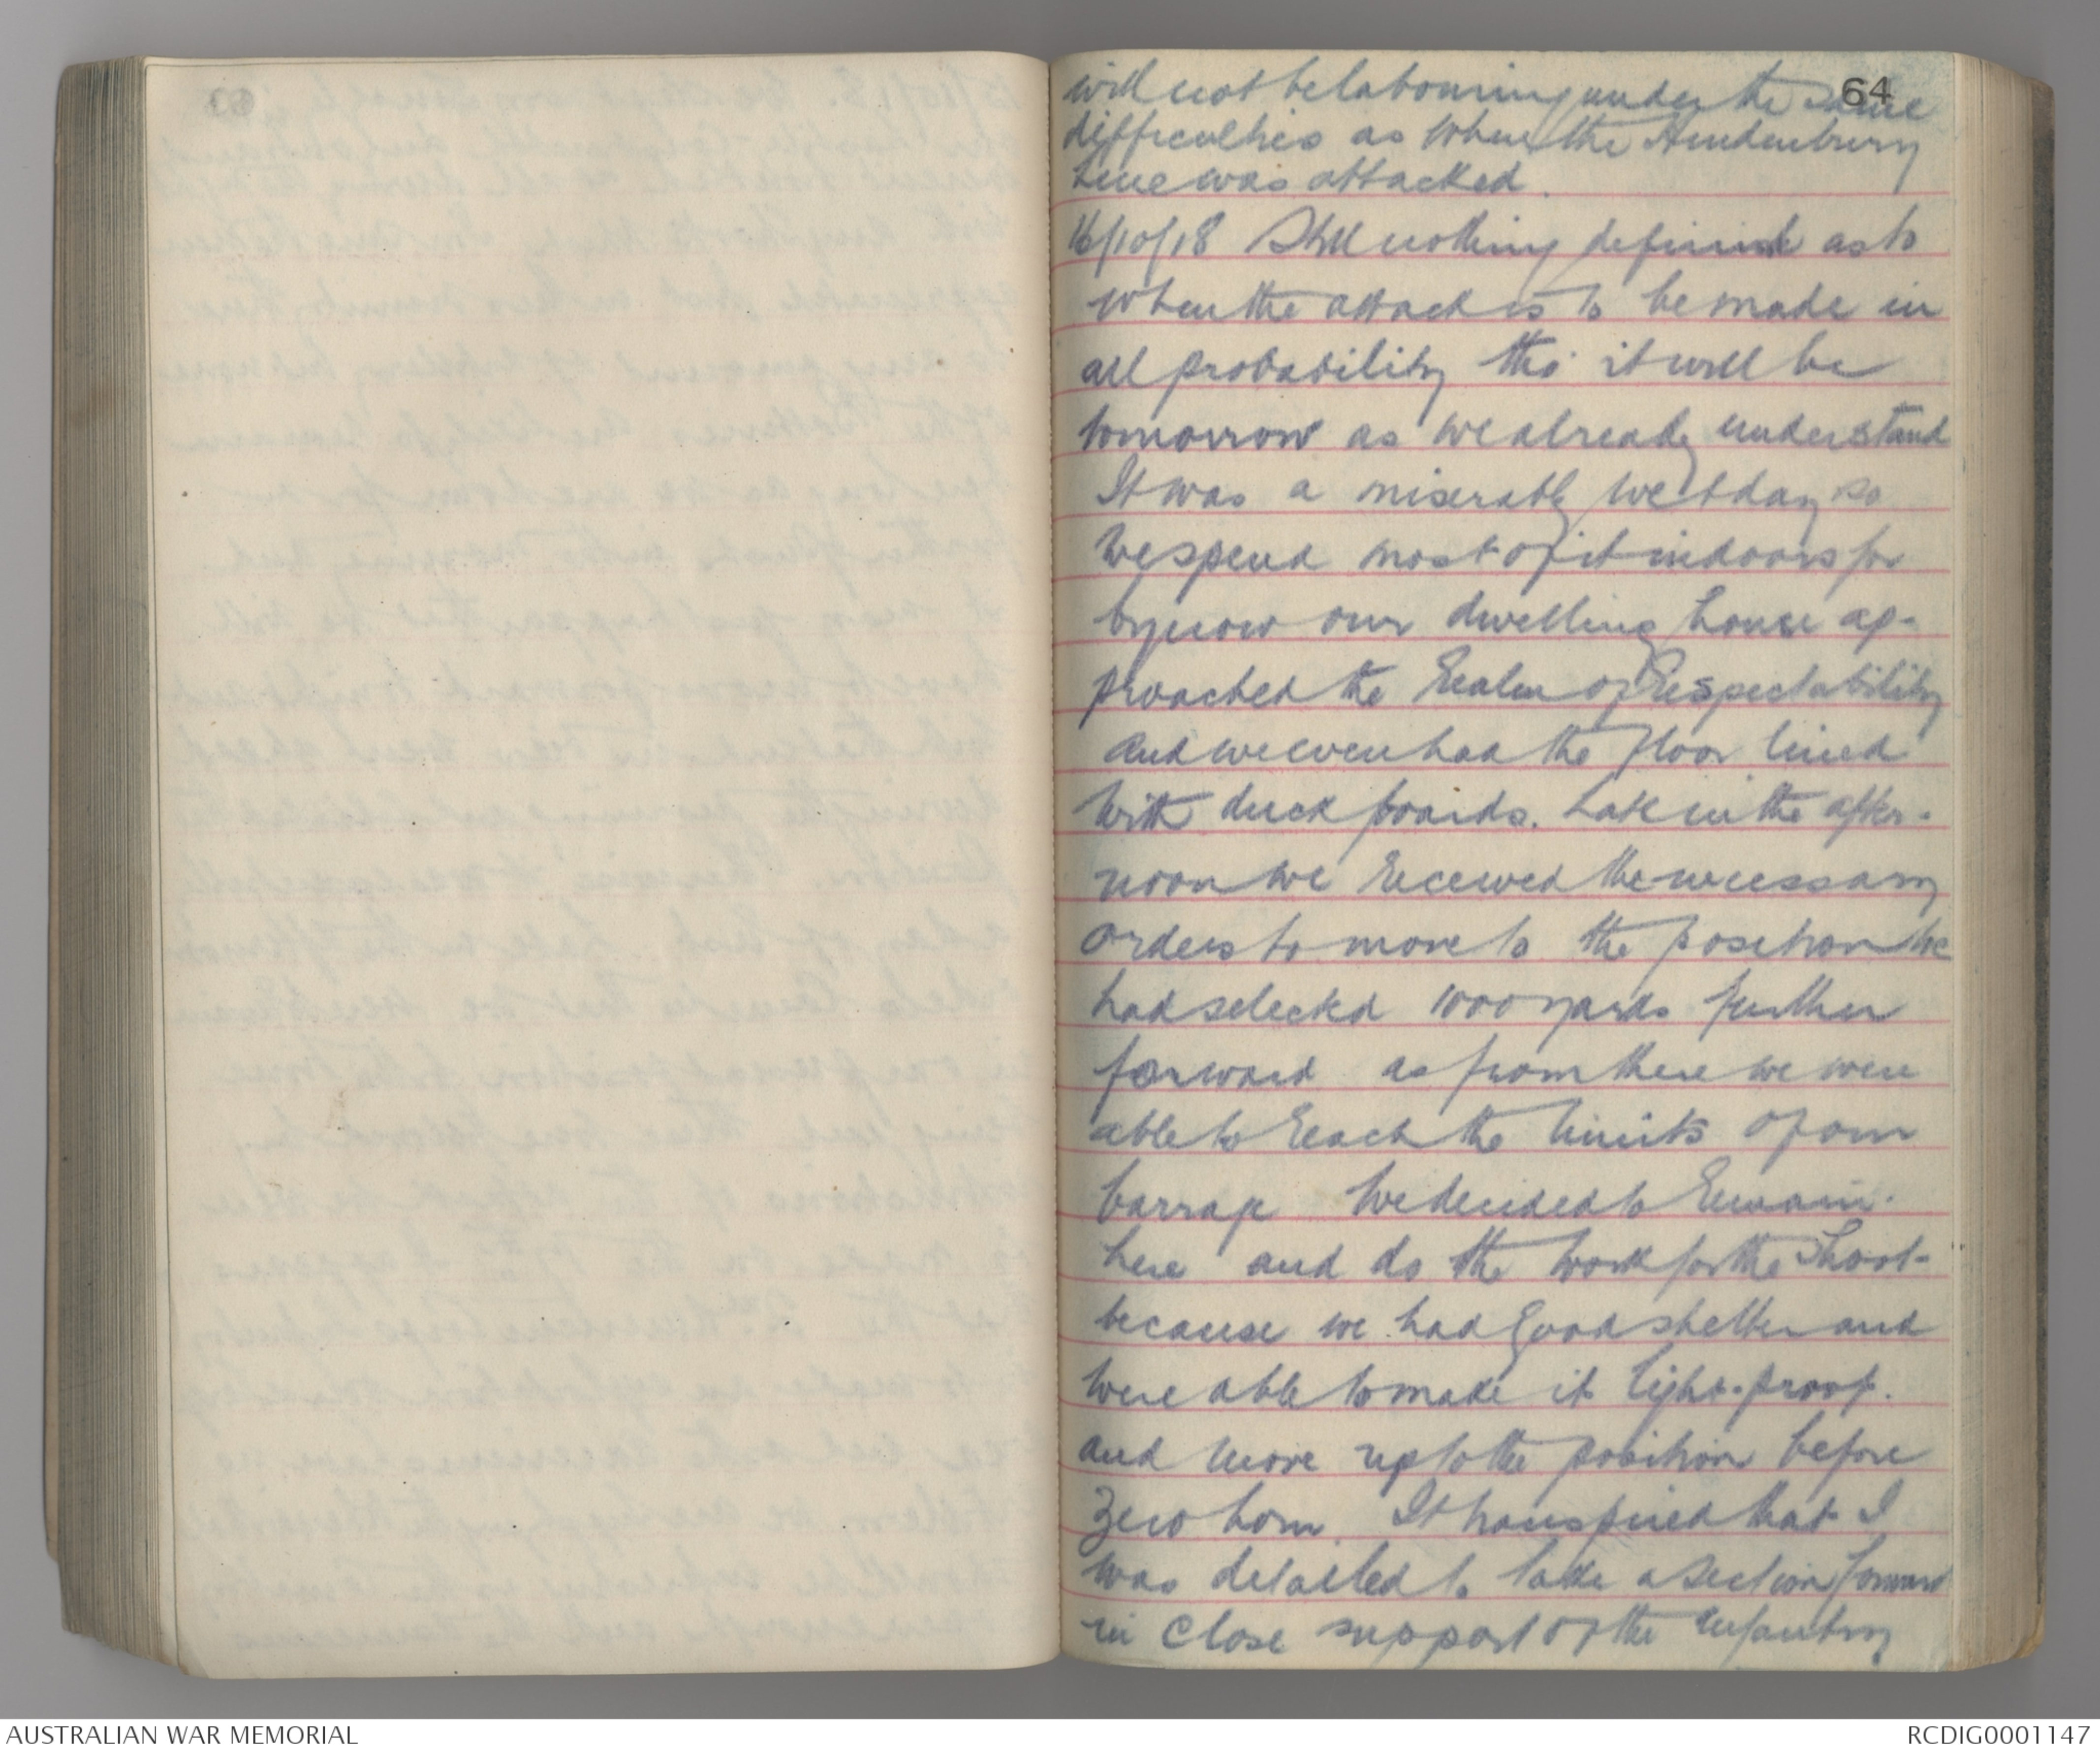 64
will not be labouring under the same
difficulties as when the Hindenburg
Line was attacked.
16/10/18 Still nothing definite as to
when the attack is to be made in
all probability tho' it will be
tomorrow as we already understand
It was a miserably wet day so
we spend most of it indoors for
by now our dwelling house ap-
proached the Realm of Respectability
and we even had the floor lined
with duck boards. Late in the after-
noon we received the necessary
orders to move to the position we
had selected 1000 yards further
forward as from there we were
able to reach the limits of our
barrage We decided to remain
here and do the work for the shoot
because we had good shelter and
were able to make it light-proof.
and move up to the position before
Zero hour. It transpired that I
was detailed to take a section forward
in close support of the Infantry
AUSTRALIAN WAR MEMORIAL
RCDIG0001147